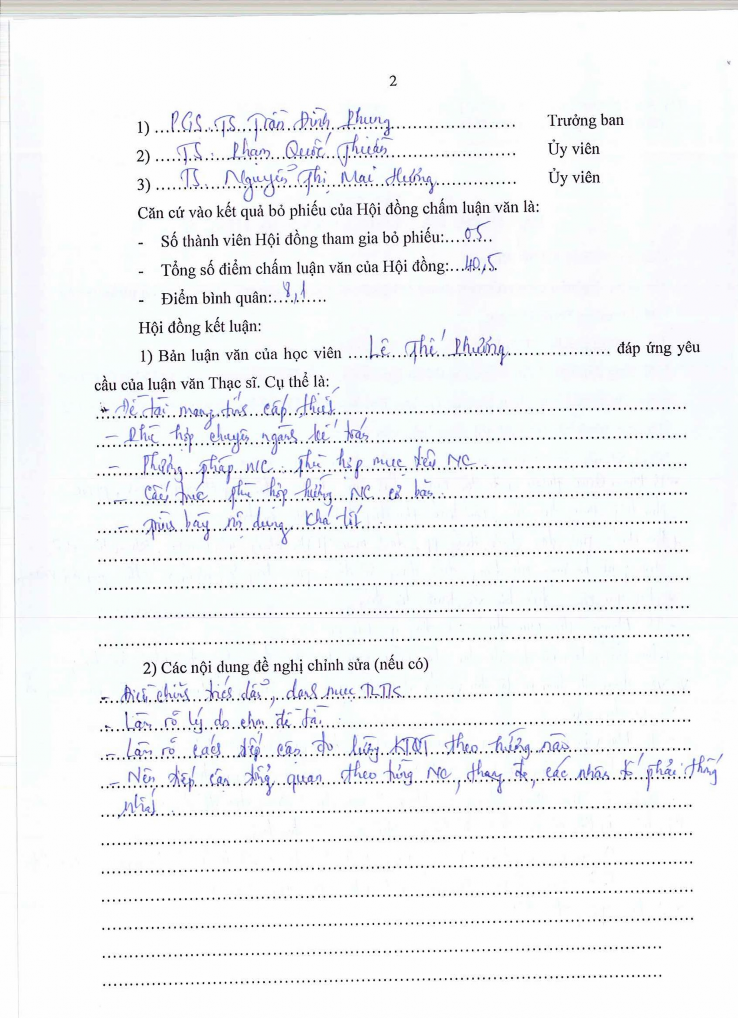 2
1) PGS. TS Trần Đình Phụng Trưởng ban
2) TS. Phạm Quốc Thuần Ủy viên
3) TS. Nguyễn Thị Mai Hương Ủy viên
Căn cứ vào kết quả bỏ phiếu của Hội đồng chấm luận văn là:
- Số thành viên Hội đồng tham gia bỏ phiếu: 05
- Tổng số điểm chấm luận văn của Hội đồng: 40,5
- Điểm bình quân: 8,1
Hội đồng kết luận:
1) Bản luận văn của học viên Lê Thế Phương đáp ứng yêu
cầu của luận văn Thạc sĩ. Cụ thể là:
- Đề tài mang tính cấp thiết
- Phù hợp chuyên ngành kế toán
- Phương pháp NC phù hợp mục tiêu NC
- Cấu trúc phù hợp hướng NC cơ bản
- Trình bày nội dung khá tốt
2) Các nội dung đề nghị chỉnh sửa (nếu có)
- Điều chỉnh trích dẫn, danh mục TLTK
- Làm rõ lý do chọn đề tài
- Làm rõ cách tiếp cận đo lường KTQT theo hướng nào
- Nên tiếp cận tổng quan theo từng NC, thang đo, các nhân tố phải thống
nhất